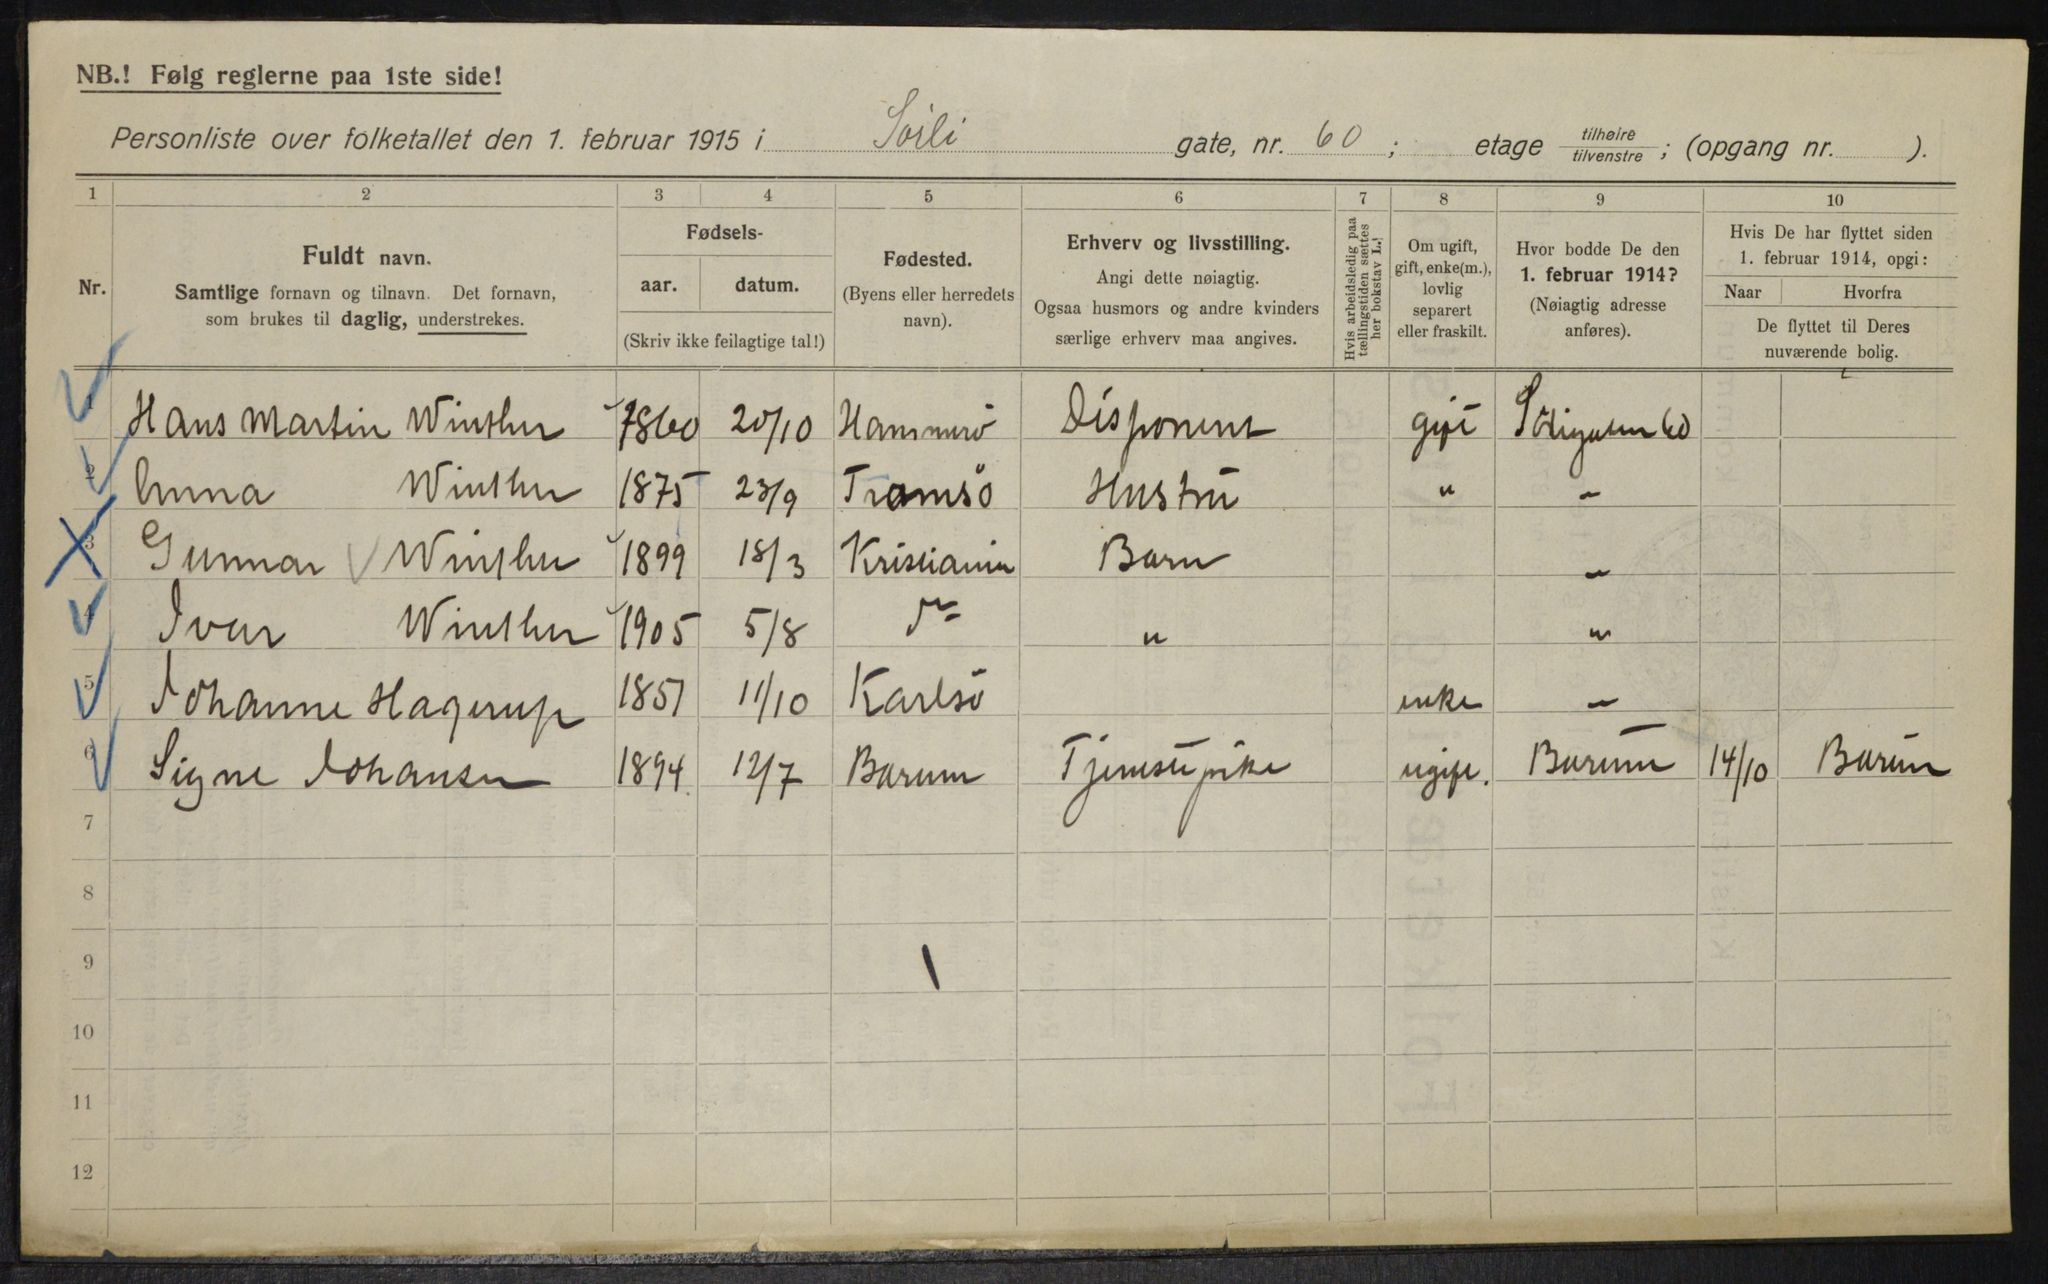 NB.! Følg reglerne paa 1ste side!
Personliste over folketallet den 1. februar 1915 i Sörli gate, nr. 60 ; etage tilhøire / tilvenstre ; (opgang nr. ).
1 2 3 4 5 6 7 8 9 10
Nr.
Fuldt navn.
Samtlige fornavn og tilnavn. Det fornavn,
som brukes til daglig, understrekes.
Fødsels-
aar. datum.
(Skriv ikke feilagtige tal!)
Fødested.
(Byens eller herredets
navn).
Erhverv og livsstilling.
Angi dette nøiagtig.
Ogsaa husmors og andre kvinders
særlige erhverv maa angives.
Hvis arbeidsledig paa
tællingstiden sættes
her bokstav L.!
Om ugift,
gift, enke(m.),
lovlig
separert
eller fraskilt.
Hvor bodde De den
1. februar 1914?
(Nøiagtig adresse
anføres).
Hvis De har flyttet siden
1. februar 1914, opgi:
Naar Hvorfra
De flyttet til Deres
nuværende bolig.
1 Hans Martin Winther 1860 20/10 Hammerö Disponent gift Sörligaten 60
2 Anna Winther 1875 23/9 Tromsö Hustru " "
3 Gunnar Winther 1899 18/3 Kristiania Barn "
4 Ivar Winther 1905 5/8 do " "
5 Johanne Hagerup 1851 11/10 Karlsö enke "
6 Signe Johansen 1894 12/7 Barum Tjenestepike ugift. Barum 14/10 Barum
7
8
9
10
11
12